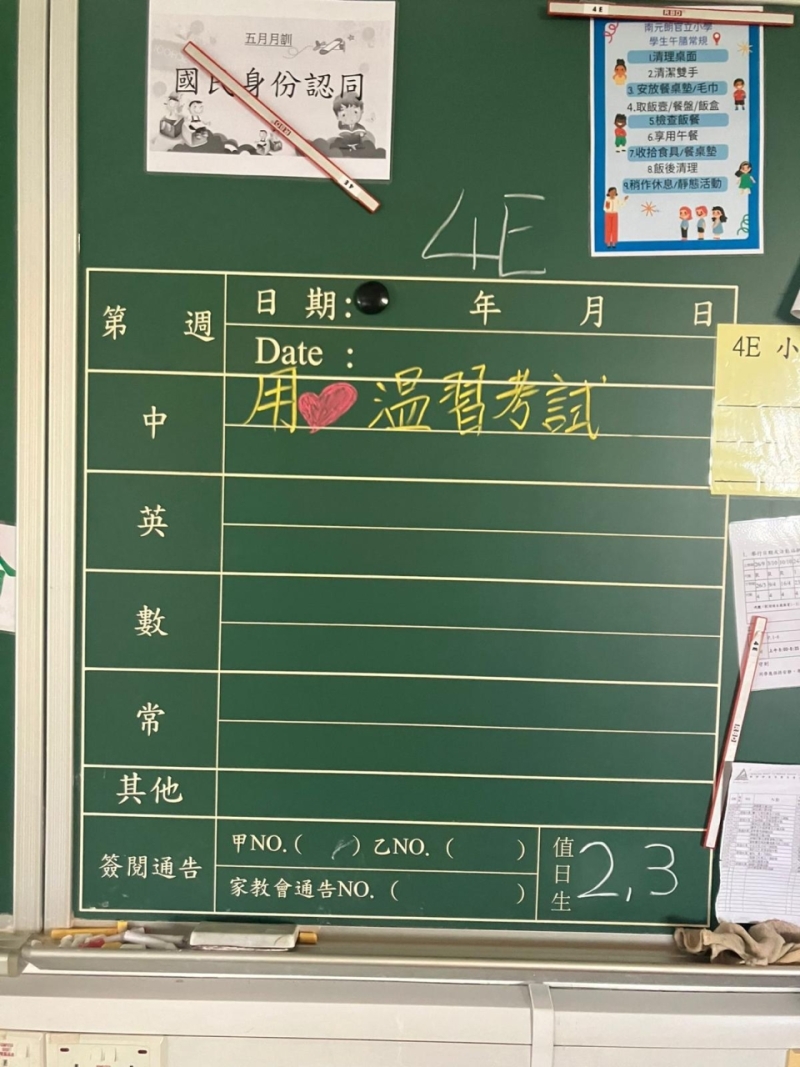 五月月訓
國民身份認同
南元朗官立小學
學生午膳常規
1.清理桌面
2.清潔雙手
3.安放餐桌墊/毛巾
4.取飯壺/餐盤/飯盒
5.檢查飯餐
6.享用午餐
7.收拾食具/餐桌墊
8.飯後清理
9.稍作休息/靜態活動
4E
4E
第 週
日期: 年 月 日
Date :
中
用❤溫習考試
英
數
常
其他
簽閱通告
甲NO.( ) 乙NO.( )
家教會通告NO.( )
值日生
2,3
4E 小